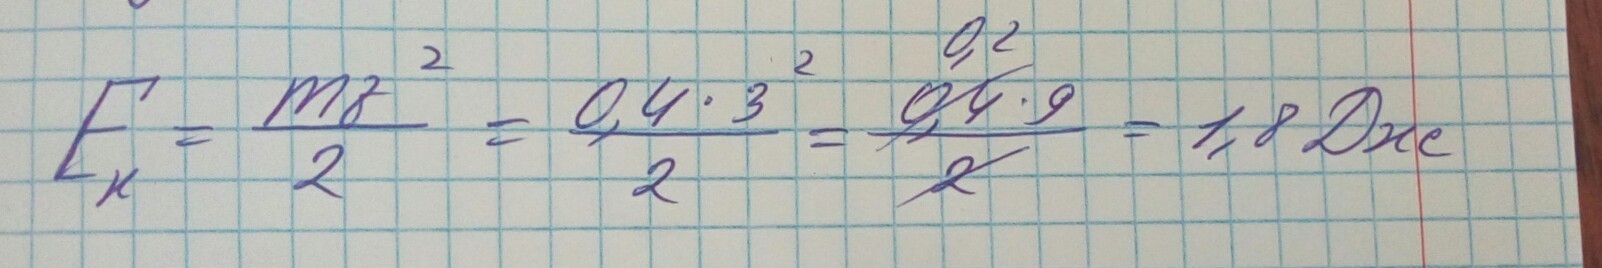 Eк = mv²/2 = 0,4·3²/2 = 0,2 0,4·9/2 = 1,8 Дж